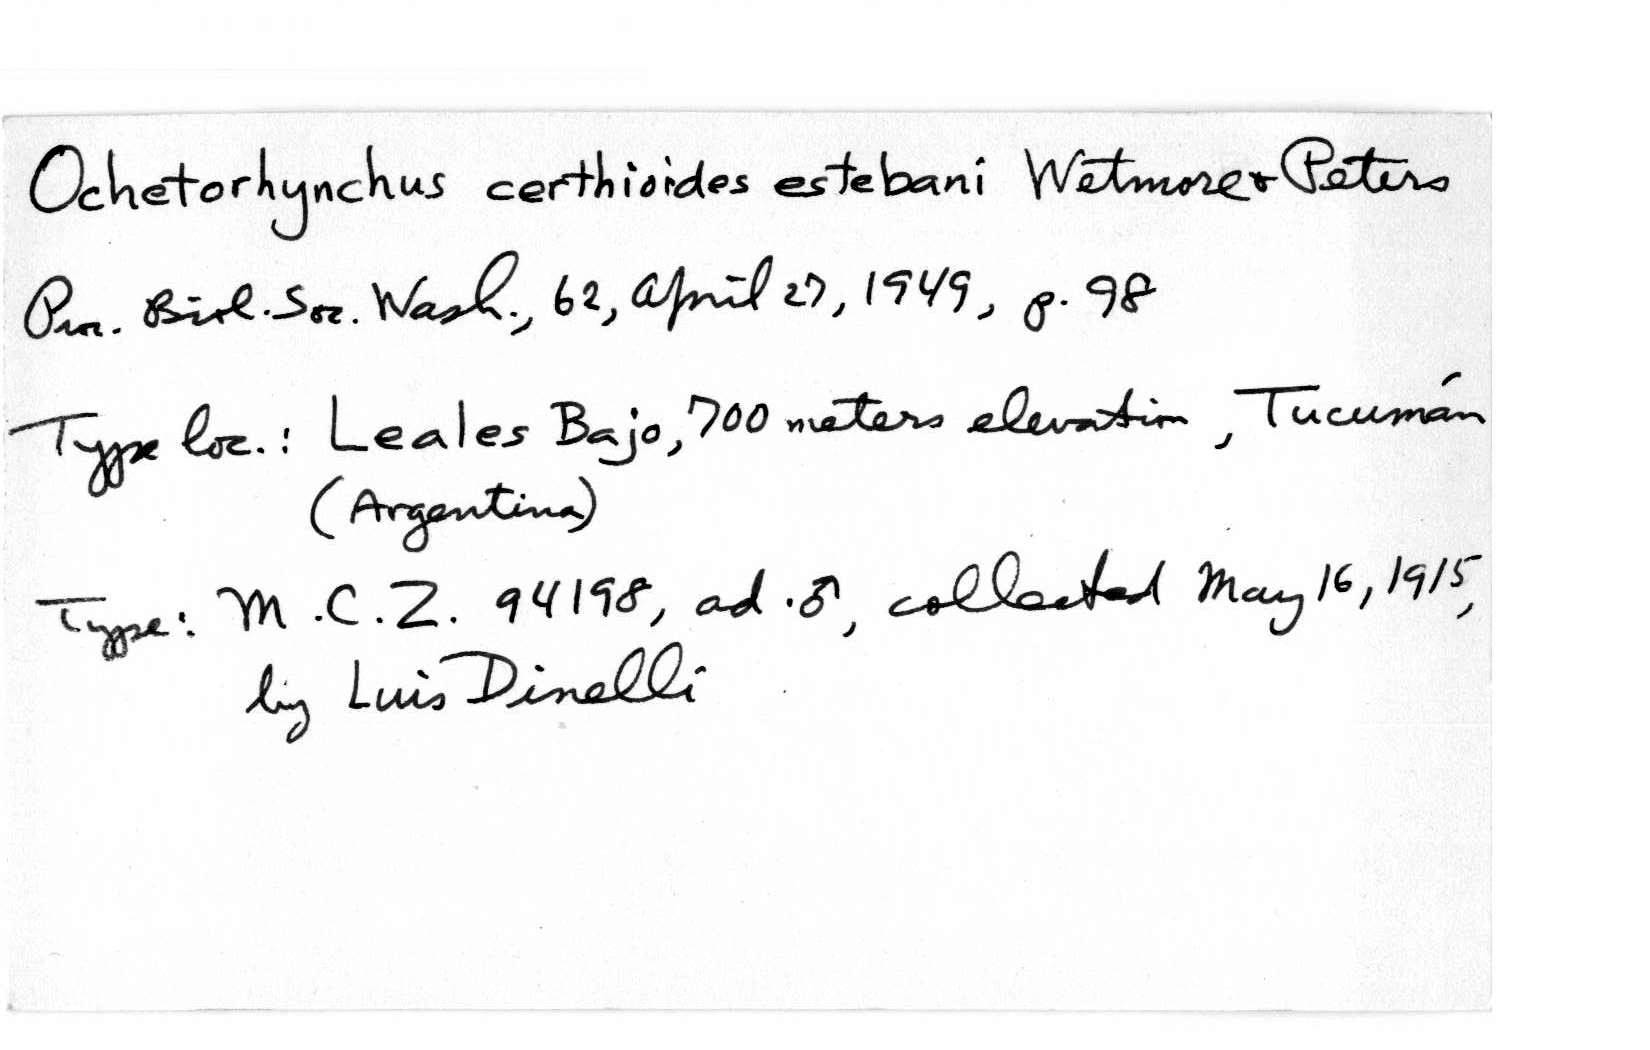 Ochetorhynchus certhioides estebani Wetmore & Peters
Proc. Biol. Soc. Wash., 62, April 27, 1949, p. 98
Type loc.: Leales Bajo, 700 meters elevation, Tucumán
(Argentina)
Type: M.C.Z. 94198, ad. ♂, collected May 16, 1915,
by Luis Dinelli